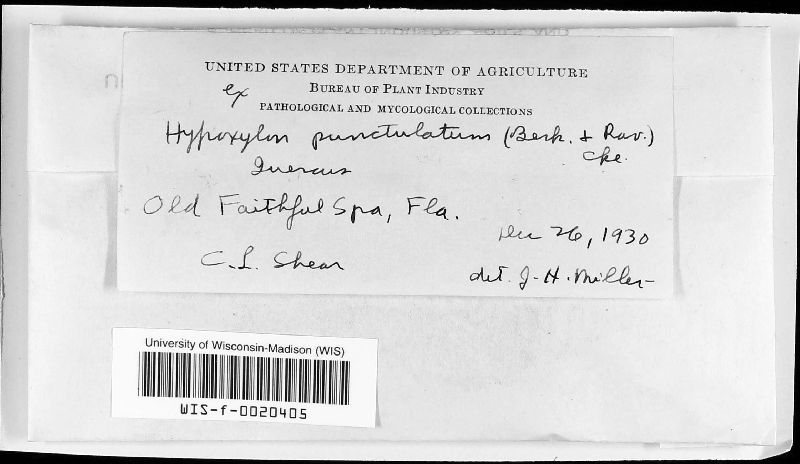 UNITED STATES DEPARTMENT OF AGRICULTURE
BUREAU OF PLANT INDUSTRY
ex
PATHOLOGICAL AND MYCOLOGICAL COLLECTIONS
Hypoxylon punctulatum (Berk. & Rav.)
Cke.
Quercus
Old Faithful Spa, Fla.
Dec 26, 1930
C. L. Shear
det. J. H. Miller
University of Wisconsin-Madison (WIS)
WIS-f-0020405